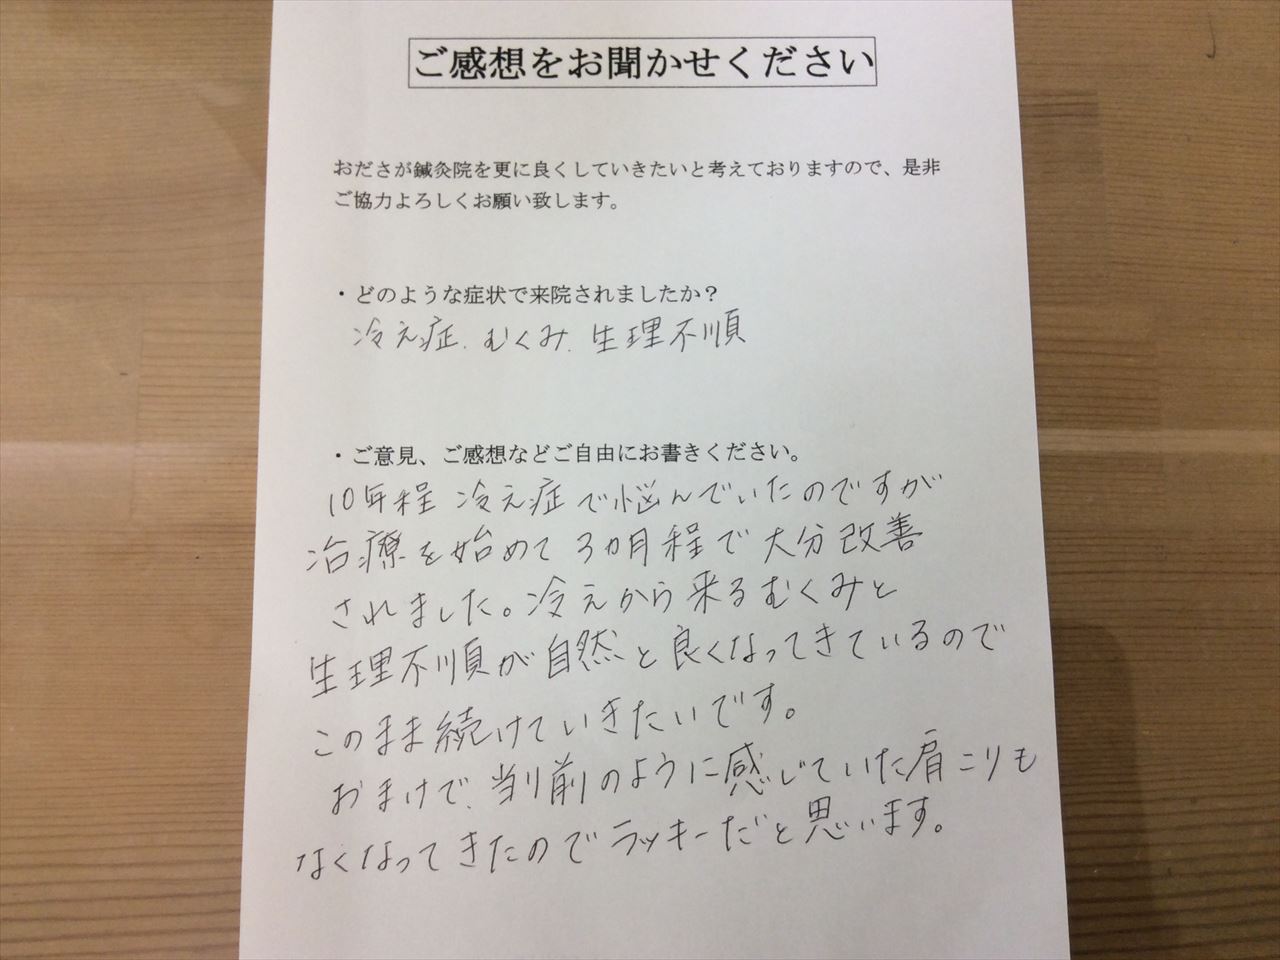 ご感想をお聞かせください
おださが鍼灸院を更に良くしていきたいと考えておりますので、是非
ご協力よろしくお願い致します。
・どのような症状で来院されましたか？
冷え症、むくみ、生理不順
・ご意見、ご感想などご自由にお書きください。
10年程 冷え症で悩んでいたのですが
治療を始めて 3ヵ月程で大分改善
されました。冷えから来るむくみと
生理不順が自然と良くなってきているので
このまま続けていきたいです。
おまけで、当り前のように感じていた肩こりも
なくなってきたのでラッキーだと思います。